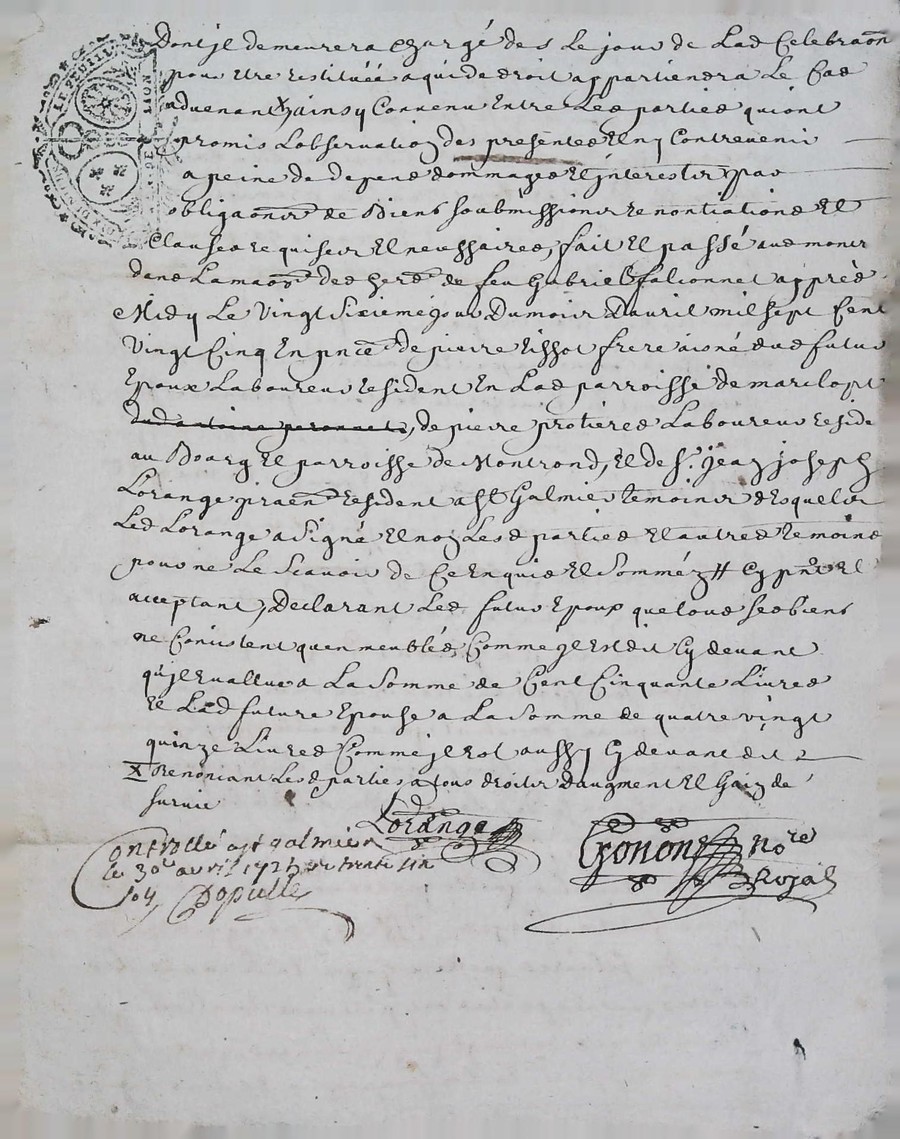 Dont jl demeurera Chargé des Le jour de Lad Celebraõn
pour Etre restituéé a qui de droit appartiendra Le Cas
advenant X ainsy Convenu Entre Lesd parties qui ont
promis Lobservation des presentes Et ny Contrevenir
a peine de depens dommages Et jnterests par
obligaõns de Biens soubmissions renontiations Et
Clauses requises Et neussaires, fait Et passé aud
dans La maõn des hers de feu Gabriel falconnet apprés
Midy Le Vingt Sixiemé jour Du mois Davril mil sept Cent
Vingt Cinq En pnce de pierre Frere aisné dud futur
Epoux Laboureur resident En Lad parroisse de marclopt
de pierre protiere Laboureur reside
au Bourg Et parroisse de Montrond, Et de sr. jean joseph
Lorange praên resident a st Galmier temoins Desquels
Led Lorange a Signé Et non Lesd parties Et autres temoins
pour ne Le Scavoir de Ce Enquis Et Sommés Cy pnt Et
acceptant, Declarant Led futur Epoux que tous ses biens
ne Consistent quen meublés, Comme jl Est dit Cy devant
qujl Evallue a La Somme de Cent Cinquante Livres
Et Lad future Epouse a La Somme de quatre vingt
quinze Livres Comme jl Est aussy Cy devant dit
X Renonciant Lesd parties a tous droits daugment Et Gain de
survie
Lorange
Gonon nore
Royal
Controllé a st galmier
le 30e avril 1725 trente six
sols